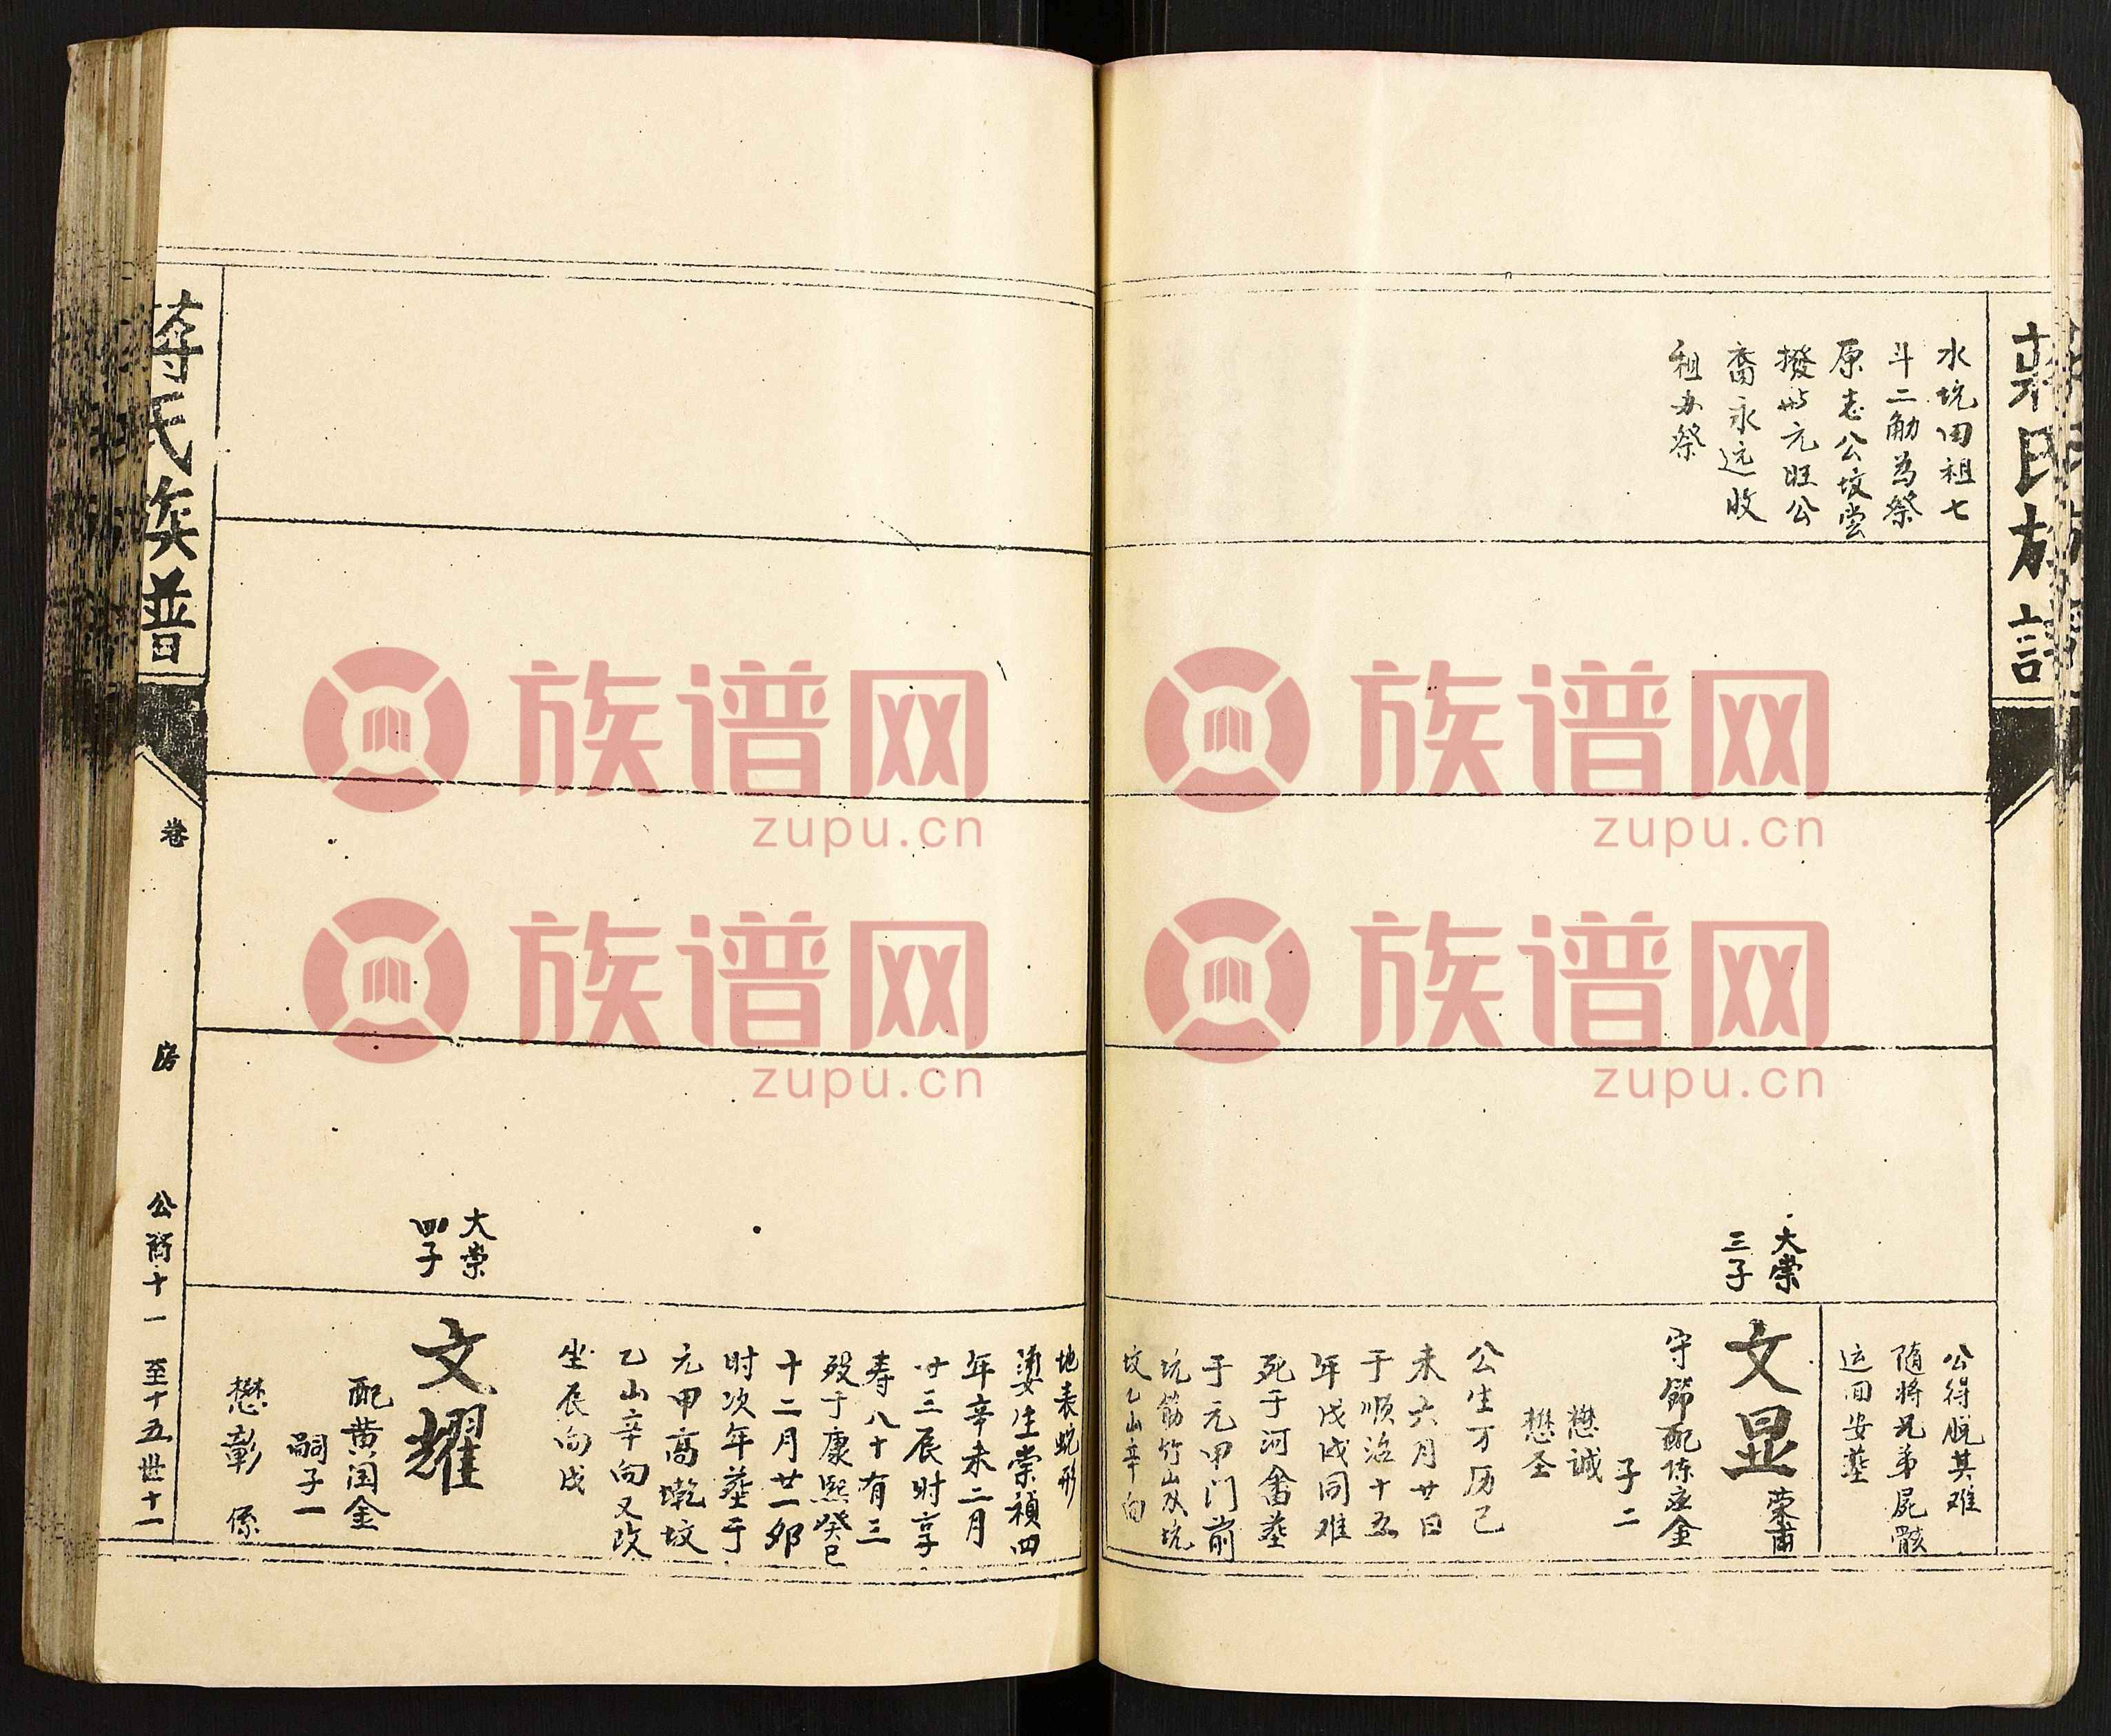 水坑田祖七
斗二觔为祭
原志公坟尝
撥此元旺公
裔永远收
租办祭
公得脱其难
随将兄弟屍骸
运回安塟
大崇
三子
文显
荣甫
守節配陈
金
子二
懋诚
懋圣
公生万历己
未六月廿日
于顺治十五
年戊戌同难
死于河畲塟
于元甲门前
坑筋竹山
坑
坟乙山辛向
地表蛇形
妻生崇禎四
年辛未二月
廿三辰时享
寿八十有三
殁于康熙癸巳
十二月廿一卯
时次年塟于
元甲高墘坟
乙山辛向又改
坐辰向戌
大崇
四子
文耀
配黄闰金
嗣子一
懋彰 係
蒋氏族谱
蒋氏族普
卷
房
公裔十一至十五世十一
族谱网
zupu.cn
族谱网
zupu.cn
族谱网
zupu.cn
族谱网
zupu.cn